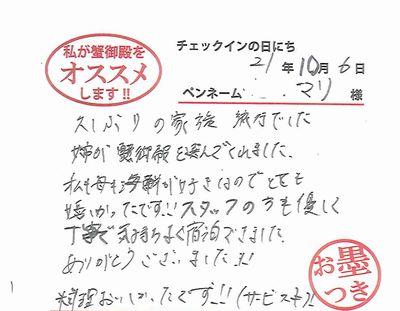 私が蟹御殿を
オススメ
します!!
チェックインの日にち
21年10月6日
ペンネーム マリ 様
久しぶりの家族旅行でした
姉が蟹御殿を選んでくれました。
私も母も海鮮が好きなのでとても
嬉しかったです!!スタッフの方も優しく
丁寧で気持ちよく宿泊できました
ありがとうございました!!
お墨
つき
料理おいしかったです!!(サービスも)